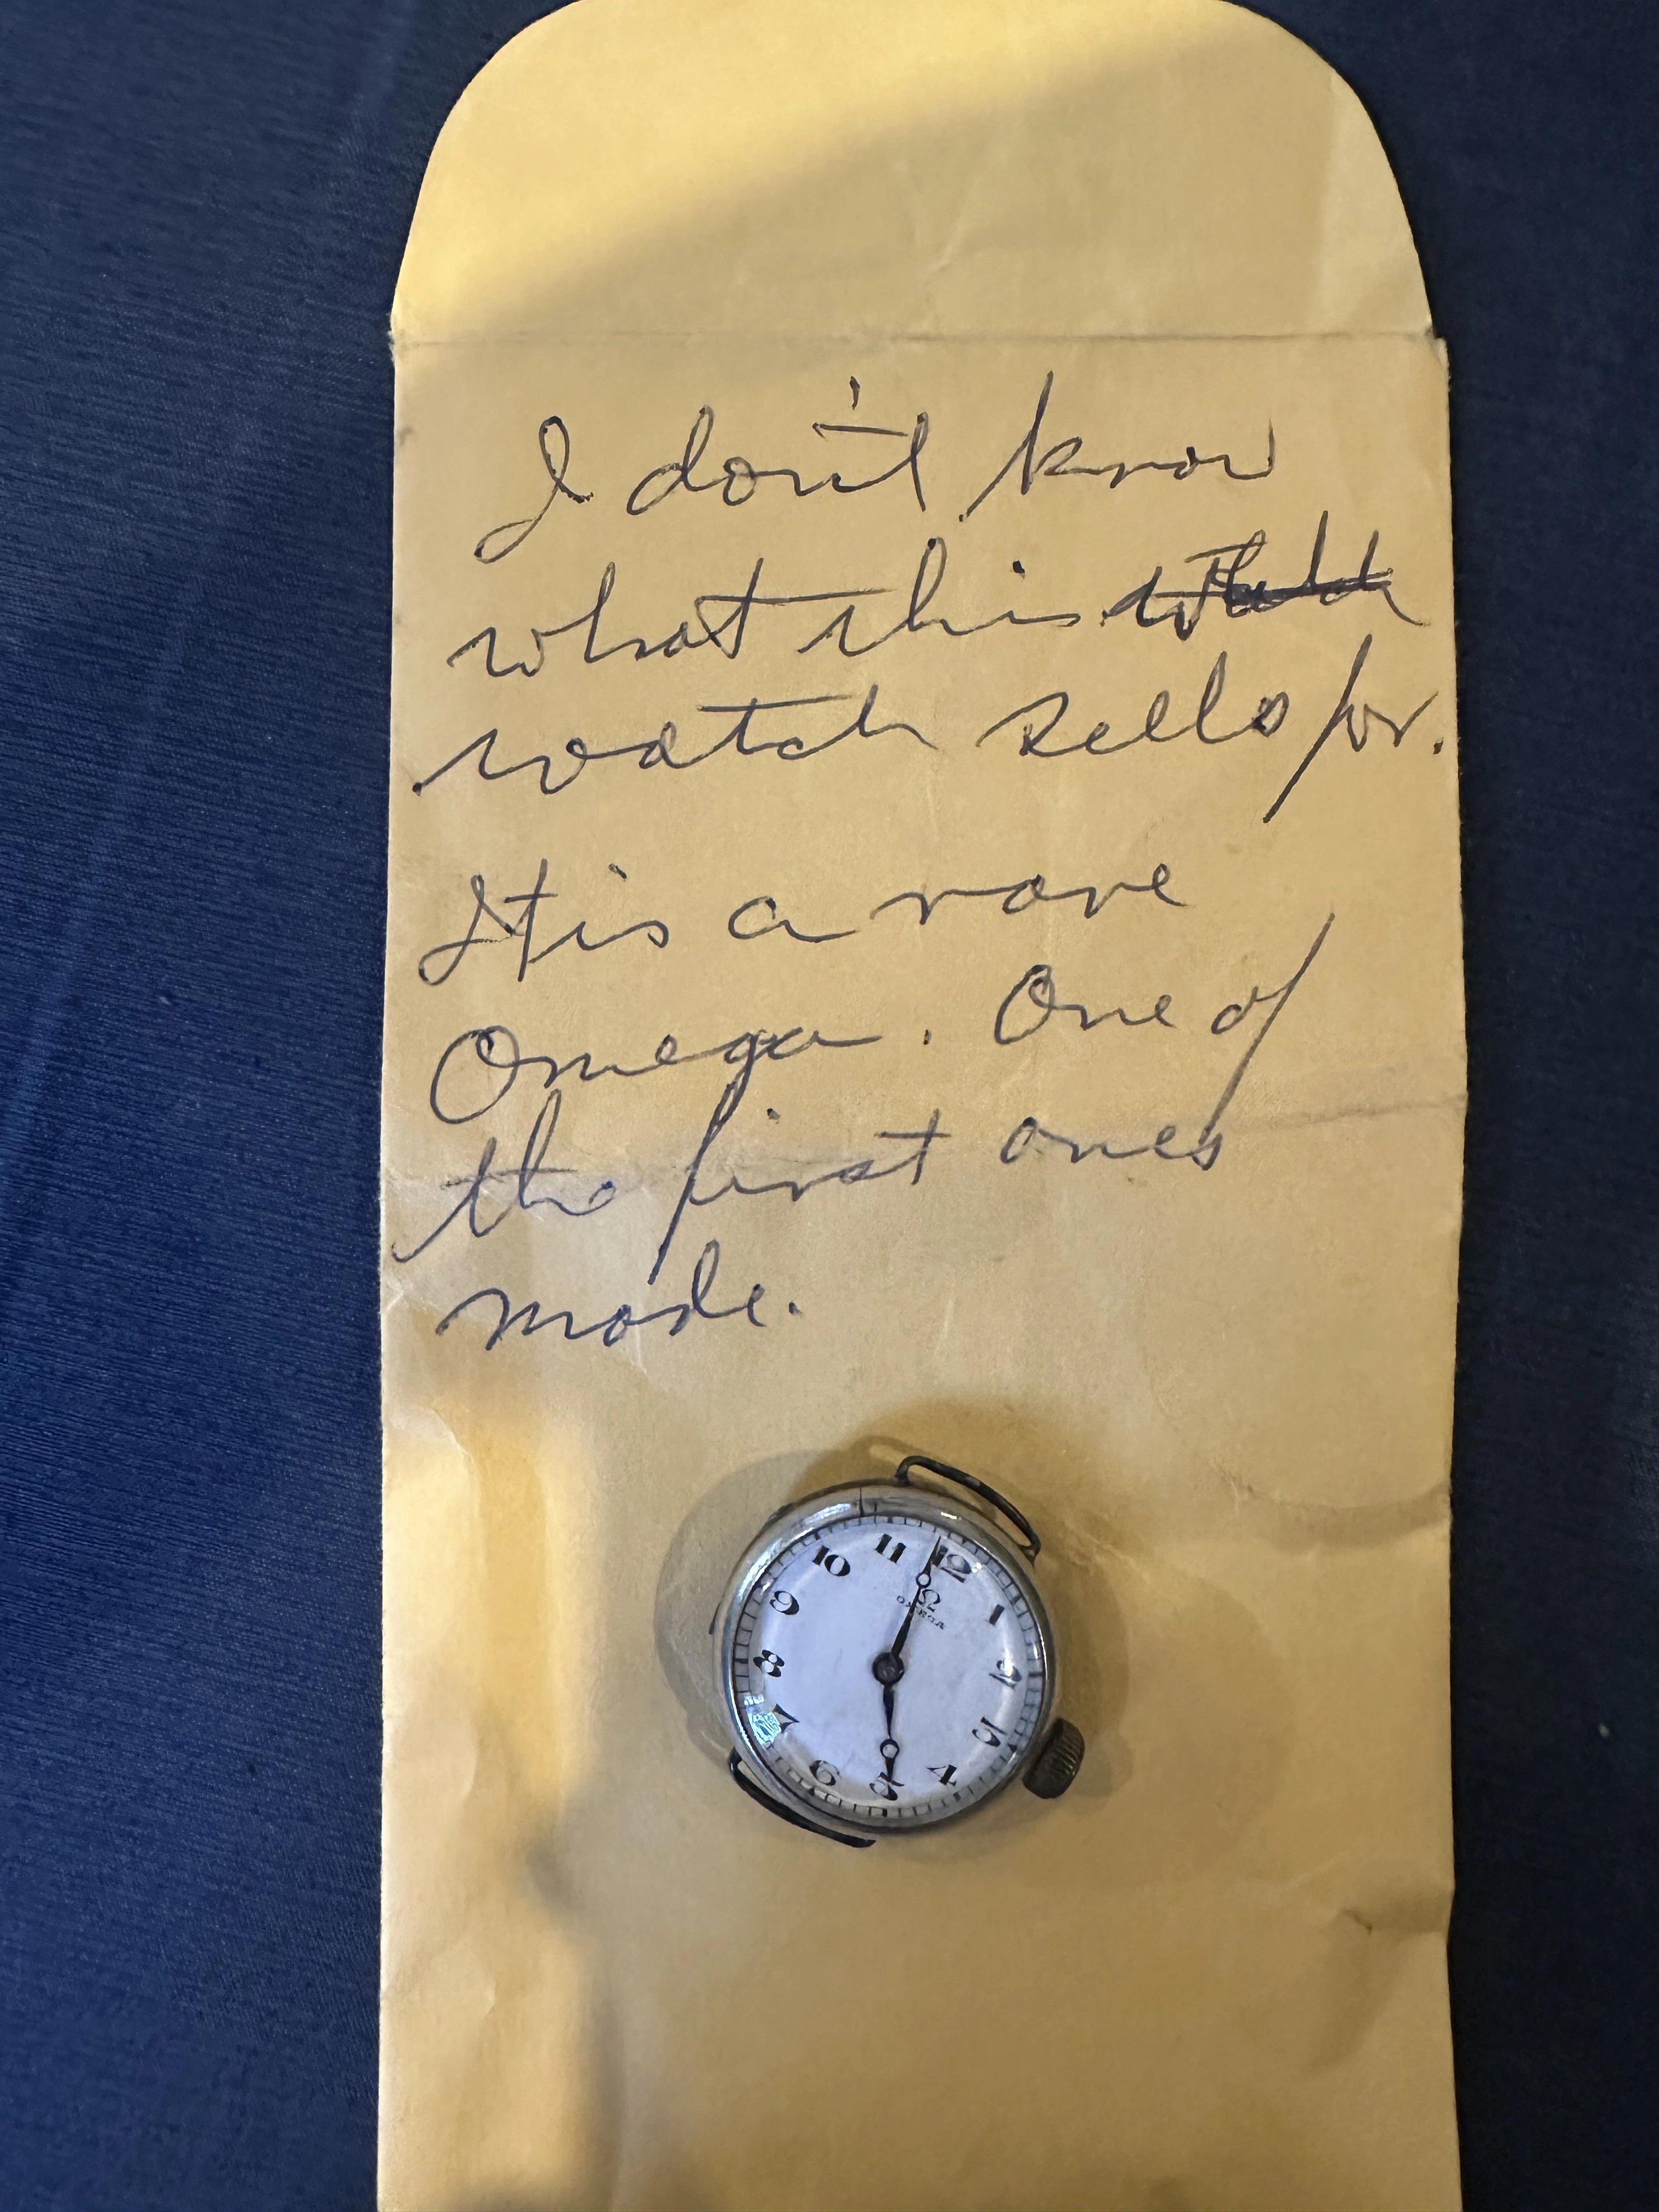 I don't know
what this
watch sells for.
It is a rare
Omega. One of
the first ones
made.
Ω
OMEGA
12
1
2
3
4
5
6
7
8
9
10
11